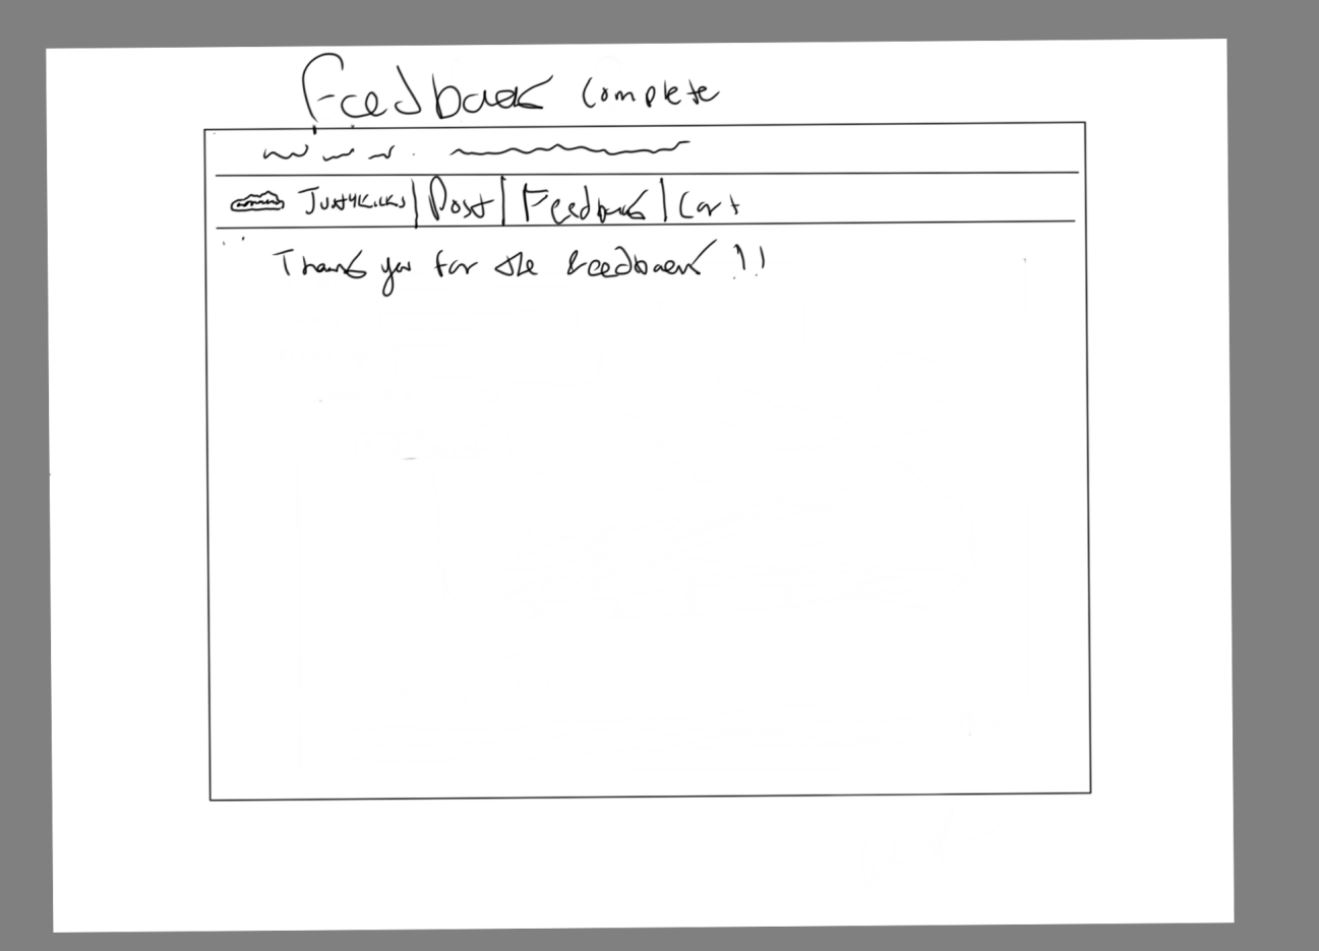 Feedback Complete
Just4Kicks | Post | Feedback | Cart
Thank you for the feedback !!